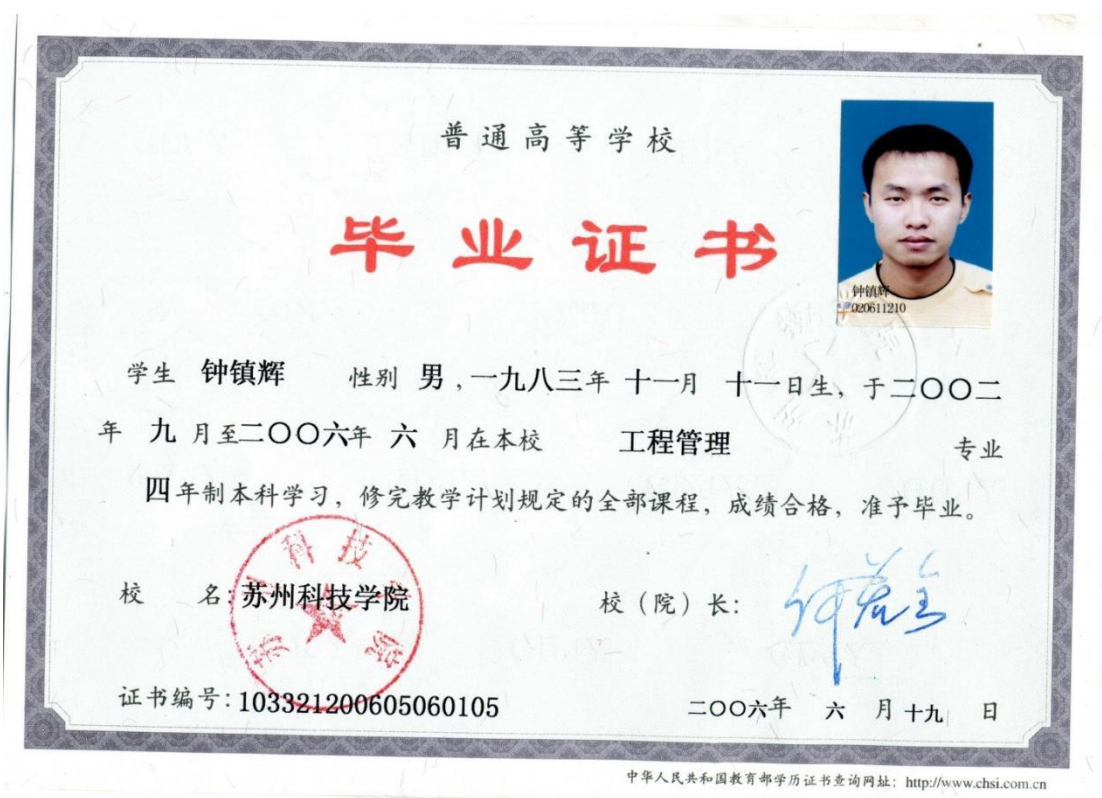 普通高等学校
毕业证书
钟镇辉
020611210
学生 钟镇辉 性别 男，一九八三年 十一月 十一日生，于二〇〇二
年 九 月至二〇〇六年 六 月在本校 工程管理 专业
四年制本科学习，修完教学计划规定的全部课程，成绩合格，准予毕业。
校 名：苏州科技学院
苏州科技学院
校（院）长：
证书编号：103321200605060105
二〇〇六年 六 月 十九 日
中华人民共和国教育部学历证书查询网址：http://www.chsi.com.cn